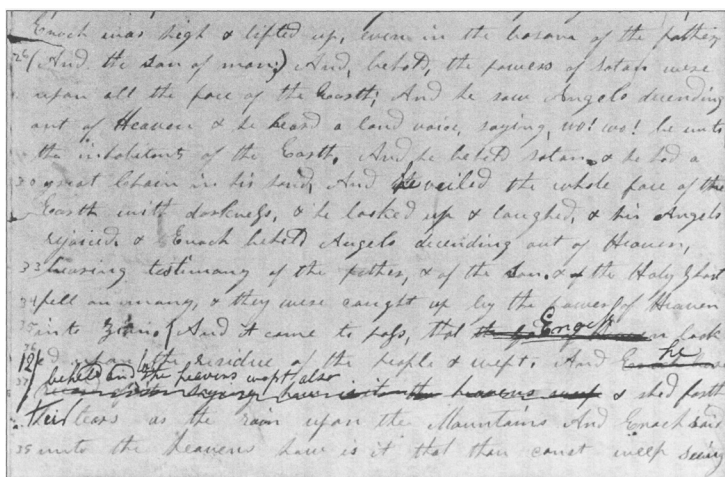 Enoch was high & lifted up, even in the bosom of the father
And the Son of man;) And, behold, the powers of satan were
upon all the face of the Earth; And he saw Angels decending
out of Heaven & he heard a loud voice, saying, wo! wo! be unto
the inhabitants of the Earth. And he beheld satan & he had a
30 great Chain in his hand, And he veiled the whole face of the
Earth with darkness, & he looked up & laughed, & his Angels
rejoiced & Enoch beheld Angels decending out of Heaven,
33 bearing testimony of the father, & of the Son & of the Holy Ghost
34 fell on many, & they were caught up by the powers of Heaven
35 into Zion. And it came to pass, that the God of Heaven look
ed upon the residue of the people & wept. And he
12 beheld and lo the heavens wept also
& shed forth
their tears as the rain upon the Mountains And Enoch said
unto the heavens how is it that thou canst weep seeing